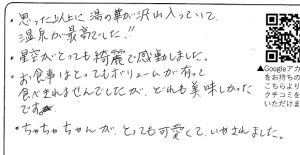 ・思った以上に湯の華が沢山入っていて
温泉が最高でした!!
・星空がとっても綺麗で感動しました。
・お食事はとってもボリュームが有って
食べきれませんでしたが、どれも美味しかった
です。
・ちゃちゃちゃんが、とっても可愛くて、いやされました。
▲Googleアカ
をお持ちの
こちらより
クチコミを
いただけま